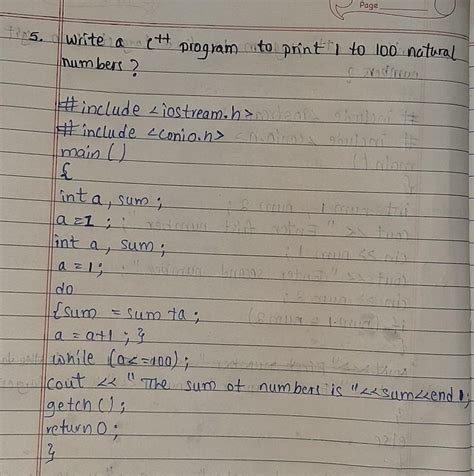 Page
5. Write a c++ program to print 1 to 100 natural
numbers?
#include <iostream.h>
#include <conio.h>
main ()
{
int a, sum;
a=1 ;
int a, sum;
a=1;
do
{sum = sum +a;
a = a+1 ; }
while (a<=100);
cout << "The sum of numbers is "<<sum<<end 1;
getch();
return 0;
}